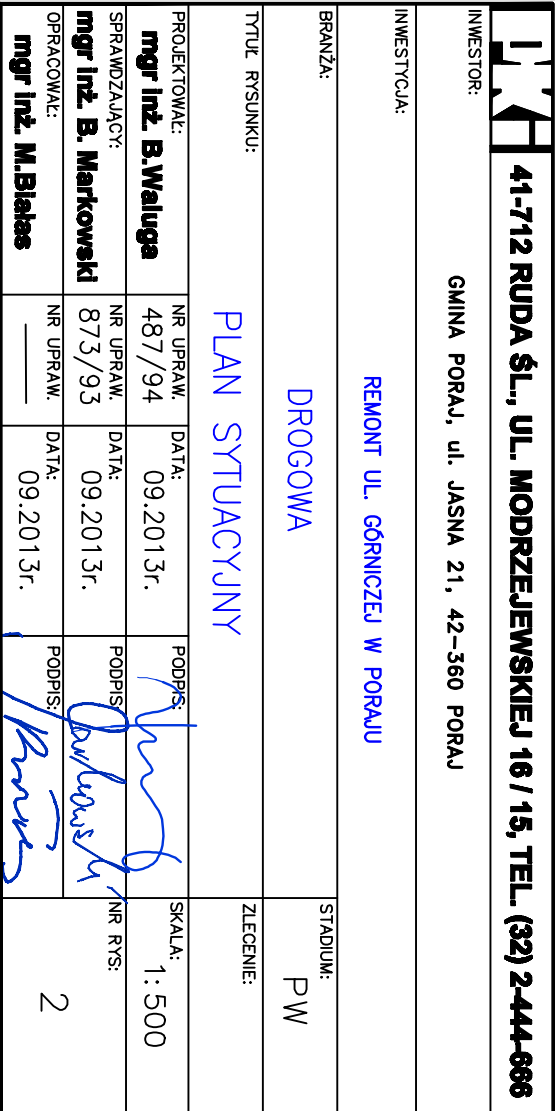 41-712 RUDA ŚL., UL. MODRZEJEWSKIEJ 16 / 15, TEL. (32) 2-444-666
INWESTOR:
GMINA PORAJ, ul. JASNA 21, 42-360 PORAJ
INWESTYCJA:
REMONT UL. GÓRNICZEJ W PORAJU
BRANŻA:
DROGOWA
STADIUM:
PW
TYTUŁ RYSUNKU:
PLAN SYTUACYJNY
ZLECENIE:
PROJEKTOWAŁ:
mgr inż. B.Waluga
NR UPRAW.
487/94
DATA:
09.2013r.
PODPIS:
SKALA:
1:500
SPRAWDZAJĄCY:
mgr inż. B. Markowski
NR UPRAW.
873/93
DATA:
09.2013r.
PODPIS:
NR RYS:
2
OPRACOWAŁ:
mgr inż. M.Białas
NR UPRAW.
DATA:
09.2013r.
PODPIS: